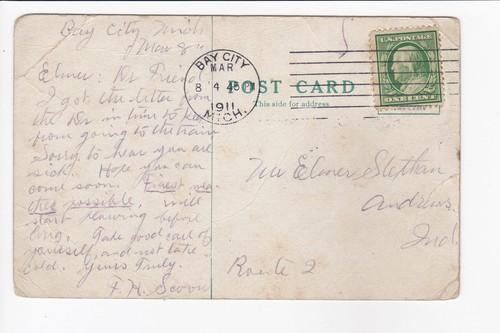 Bay City Mich
Mar 8"
Elmer: Dr Friend
I got the letter from
the Dr in time to keep
from going to the train
Sorry to hear you are
sick. Hope you can
come soon. Finest
possible, will
start plowing before
long. Take good care of
yourself, and not take
cold. Yours Truly.
F. H.
BAY CITY
MAR
8
4
1911
MICH.
POST CARD
This side for address
U.S. POSTAGE
ONE CENT
Mr Elmer
Andrews
Ind.
Route 2